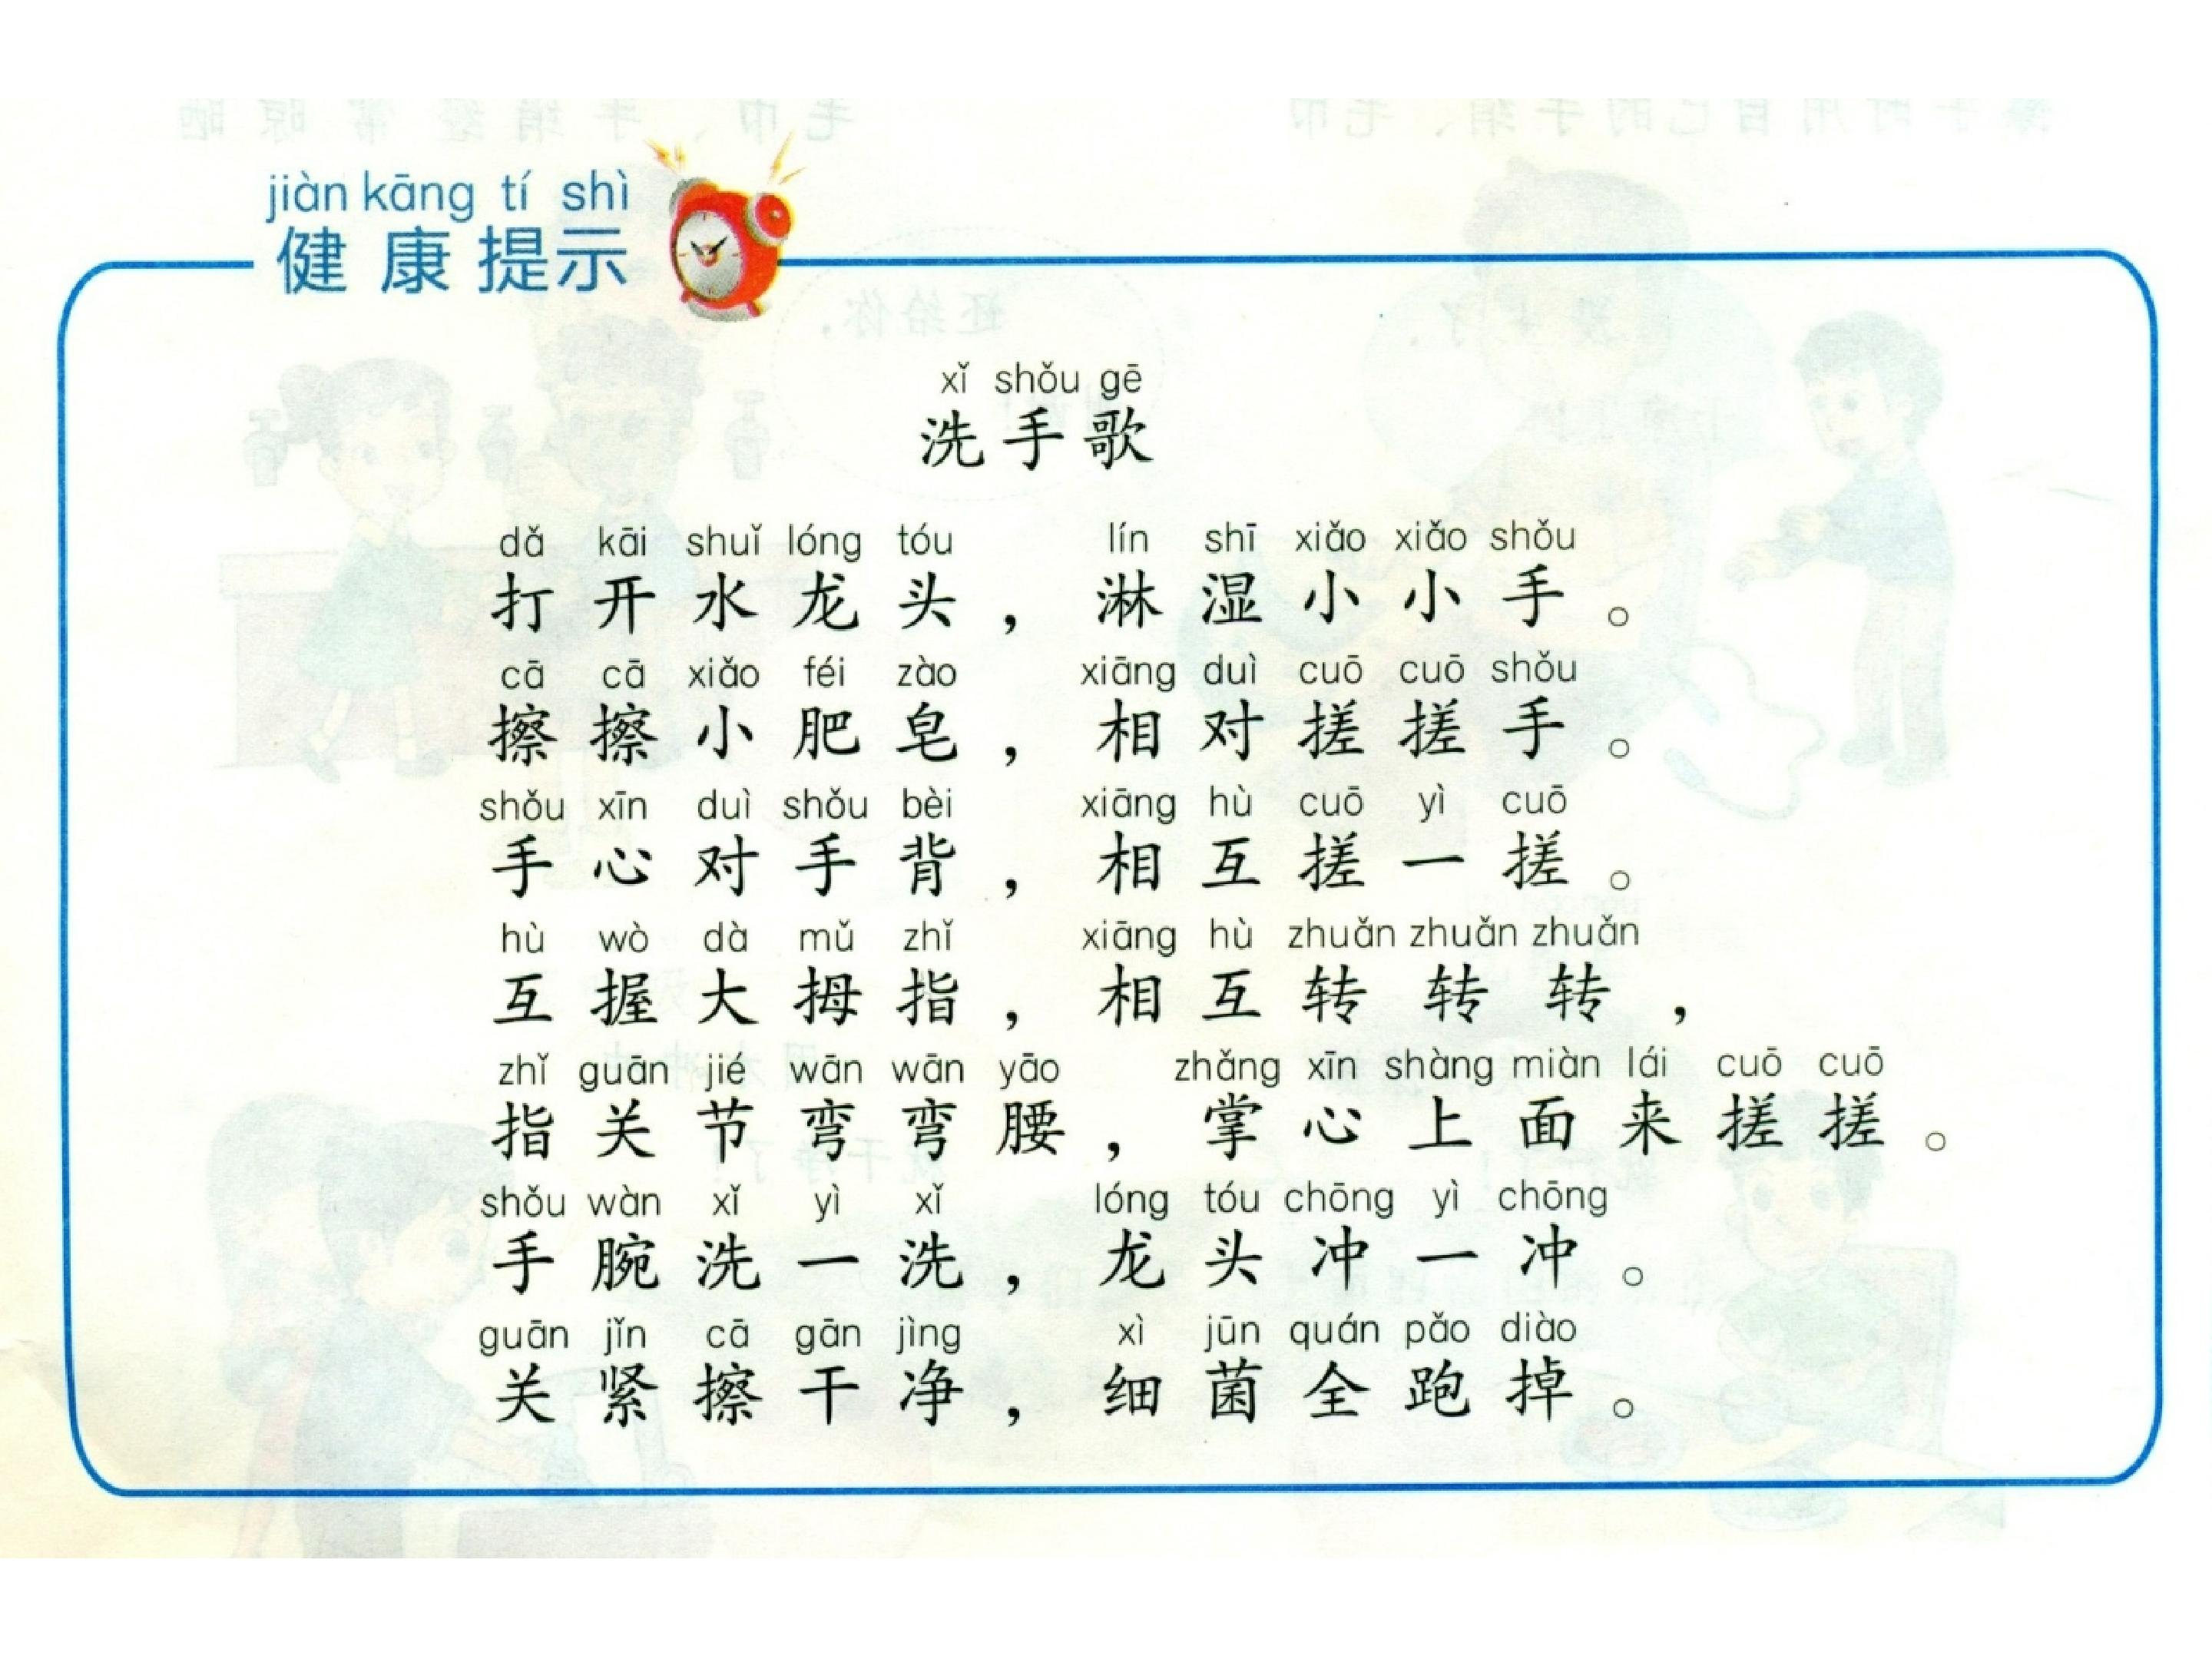 jiàn kāng tí shì
健康提示
xǐ shǒu gē
洗手歌
dǎ kāi shuǐ lóng tóu lín shī xiǎo xiǎo shǒu
打开水龙头，淋湿小小手。
cā cā xiǎo féi zào xiāng duì cuō cuō shǒu
擦擦小肥皂，相对搓搓手。
shǒu xīn duì shǒu bèi xiāng hù cuō yì cuō
手心对手背，相互搓一搓。
hù wò dà mǔ zhǐ xiāng hù zhuǎn zhuǎn zhuǎn
互握大拇指，相互转转转，
zhǐ guān jié wān wān yāo zhǎng xīn shàng miàn lái cuō cuō
指关节弯弯腰，掌心上面来搓搓。
shǒu wàn xǐ yì xǐ lóng tóu chōng yì chōng
手腕洗一洗，龙头冲一冲。
guān jǐn cā gān jìng xì jūn quán pǎo diào
关紧擦干净，细菌全跑掉。